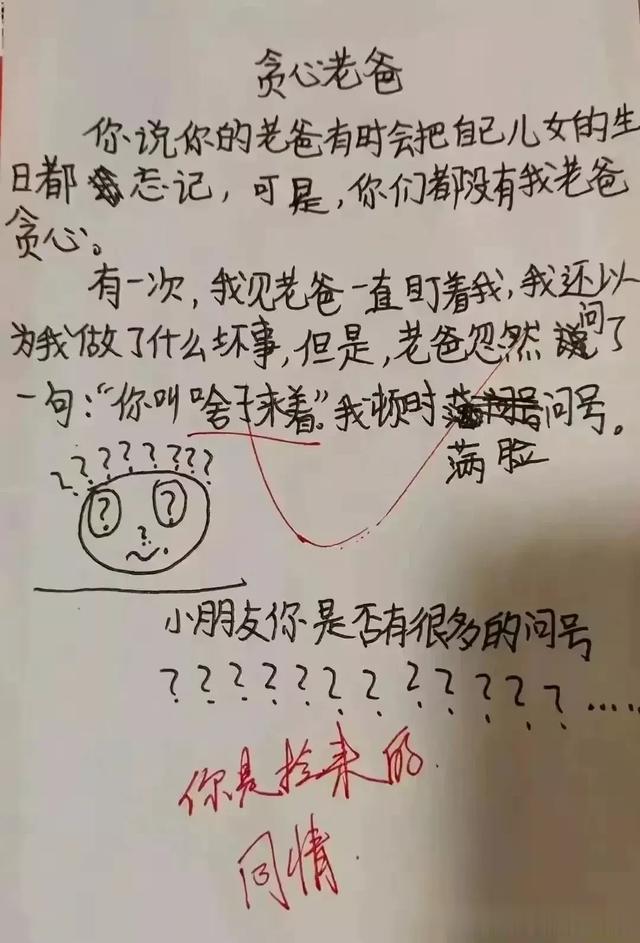 贪心老爸
你说你的老爸有时会把自己儿女的生
日都忘记，可是，你们都没有我老爸
贪心。
有一次，我见老爸一直盯着我，我还以
为我做了什么坏事，但是，老爸忽然问了
一句：“你叫啥子来着”。我顿时满脸问号。
???????
? ?
?
小朋友你是否有很多的问号
????????????……
你是捡来的
同情